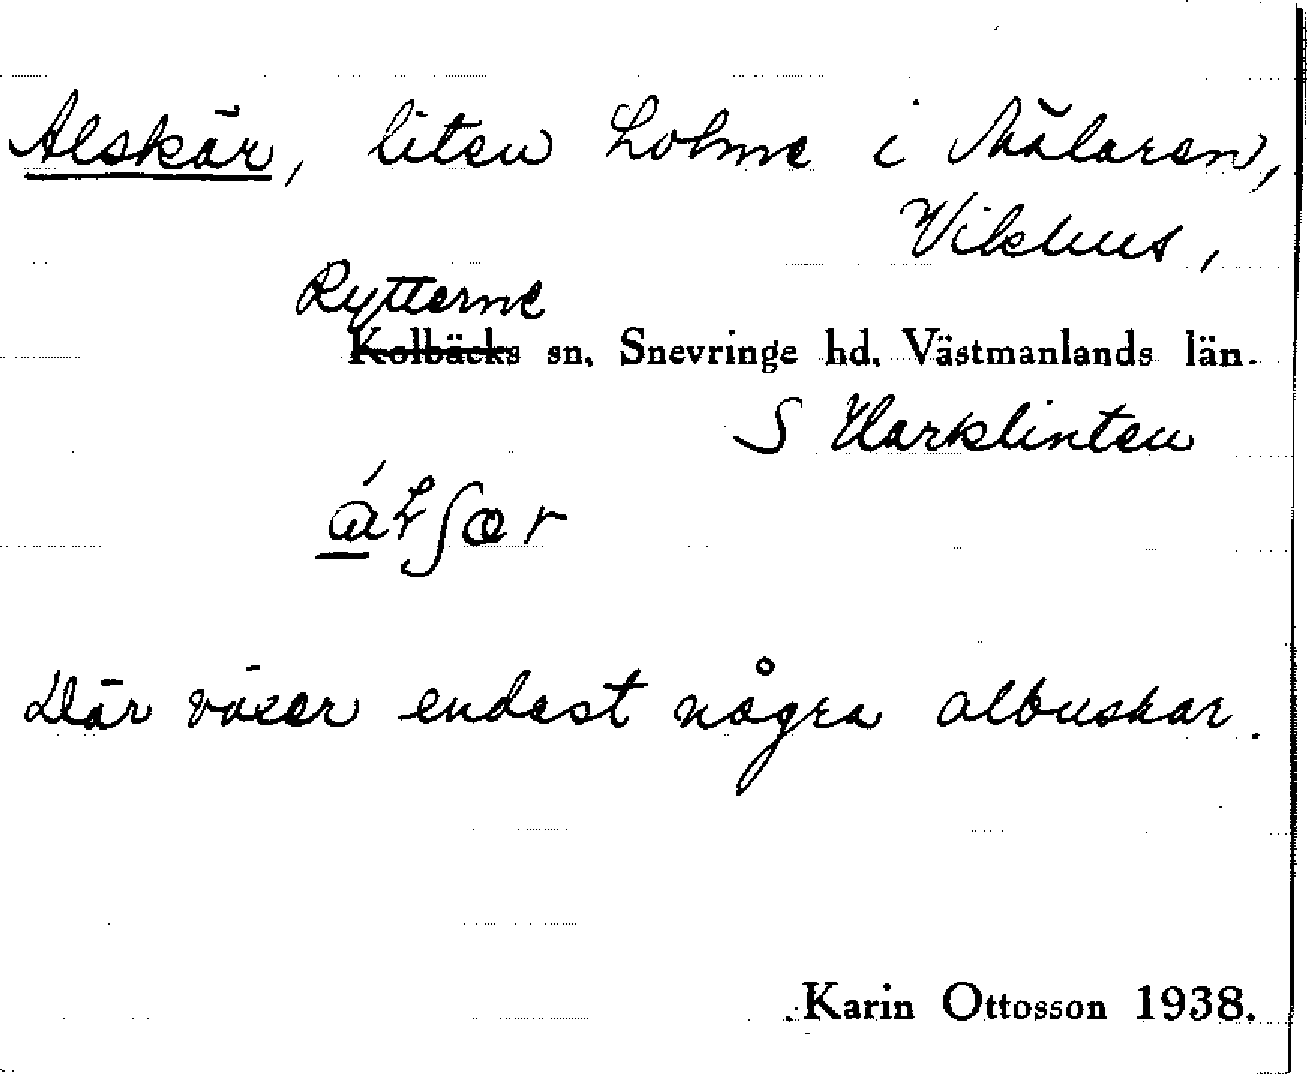 Alskär, liten holme i Mälaren,
Vikhus,
Rytterne
Kolbäcks sn, Snevringe hd, Västmanlands län.
S Harklinten
Där växer endast några albuskar.
Karin Ottosson 1938.